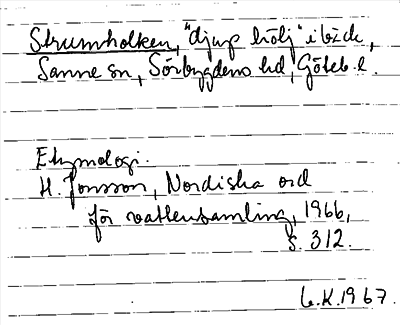 Strumholken, "djup hölj" i bäck,
Sanne sn, Sörbygdens hd, Göteb. l.
Etymologi.
H. Jonsson, Nordiska ord
för vattensamling, 1966,
s. 312.
L.K. 1967.